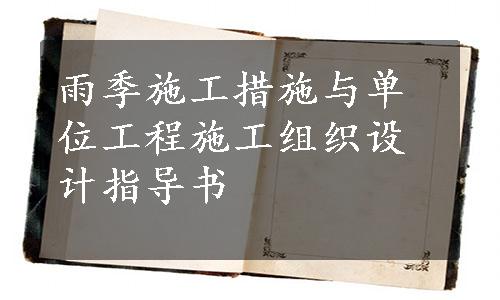 雨季施工措施与单
位工程施工组织设
计指导书